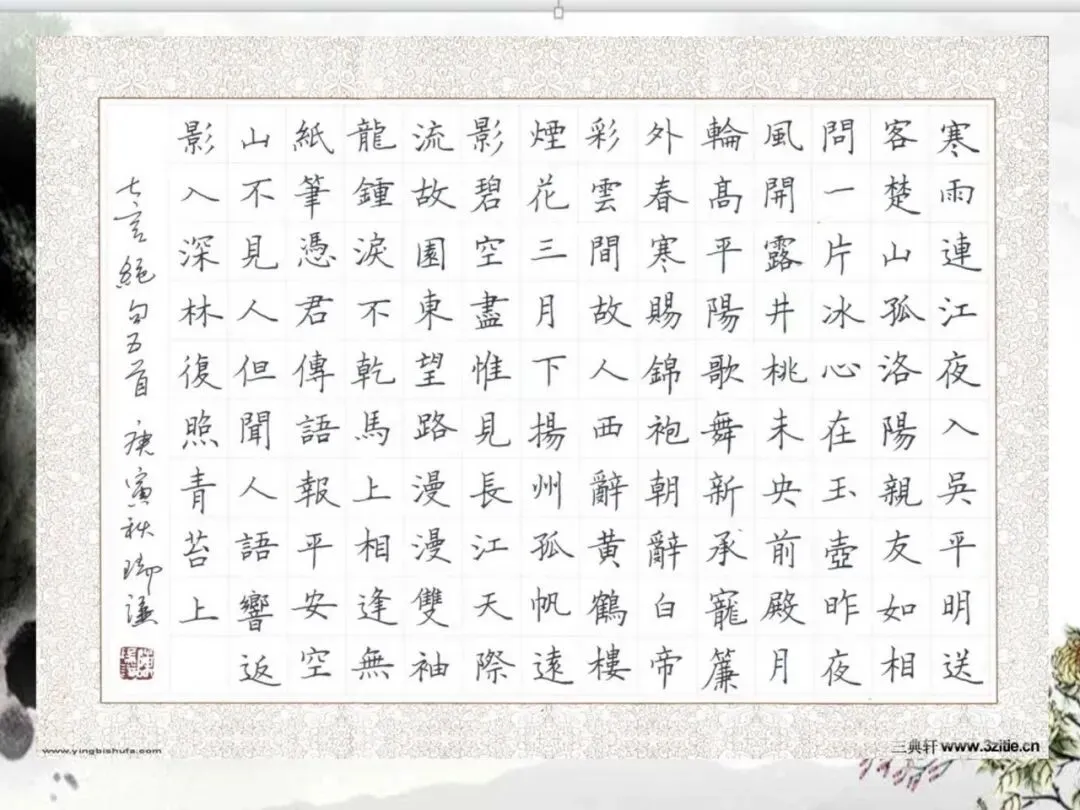 寒雨連江夜入吳平明送
客楚山孤洛陽親友如相
問一片冰心在玉壺昨夜
風開露井桃未央前殿月
輪高平陽歌舞新承寵簾
外春寒賜錦袍朝辭白帝
彩雲間故人西辭黃鶴樓
煙花三月下揚州孤帆遠
影碧空盡惟見長江天際
流故園東望路漫漫雙袖
龍鍾淚不乾馬上相逢無
紙筆憑君傳語報平安空
山不見人但聞人語響返
影入深林復照青苔上
七言絕句五首 庚寅秋
www.yingbishufa.com
三典轩 www.3zitie.cn